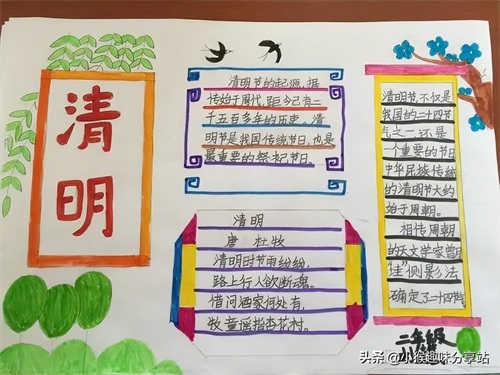 清
明
清明节的起源,据
传始于周代,距今已有二
千五百多年的历史。清
明节是我国传统节日,也是
最重要的祭祀节日。
清明
唐 杜牧
清明时节雨纷纷,
路上行人欲断魂。
借问酒家何处有,
牧童遥指杏花村。
清明节,不仅是
我国的二十四节
气之一,还是
一个重要的节日
中华民族传统
的清明节大约
始于周朝。
相传周朝
的天文学家曾用
"圭"侧影法
确定了二十四节
二年级
头条 @小猴趣味分享站